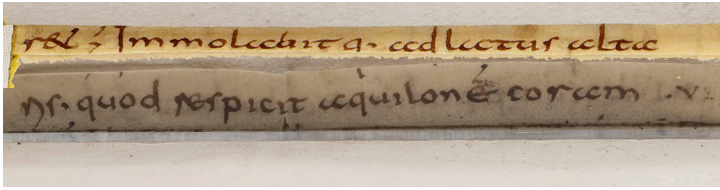 r& ; Immolabit q· ad latus alta
ris· quod respicit aquilonē coram